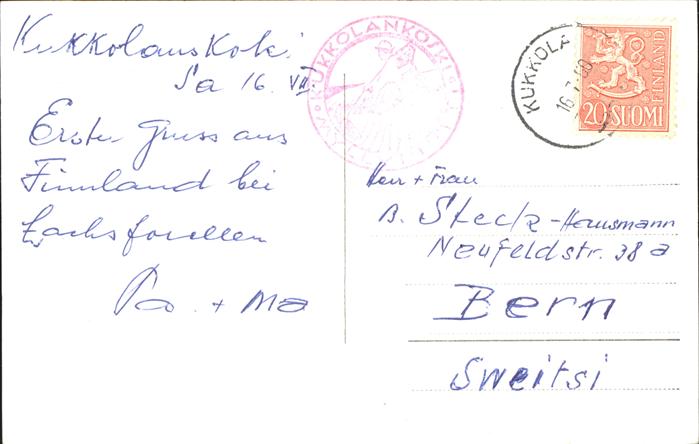 Kukkolanskoki
Sa 16. VII.
Erster Gruss aus
Finnland bei
Lachsforellen
Pa. + Ma
KUKKOLANKOSKI
KUKKOLA
16.7.60
20 SUOMI
FINLAND
Herr + Frau
B. Steck-Hausmann
Neufeldstr. 38a
Bern
Sweitsi